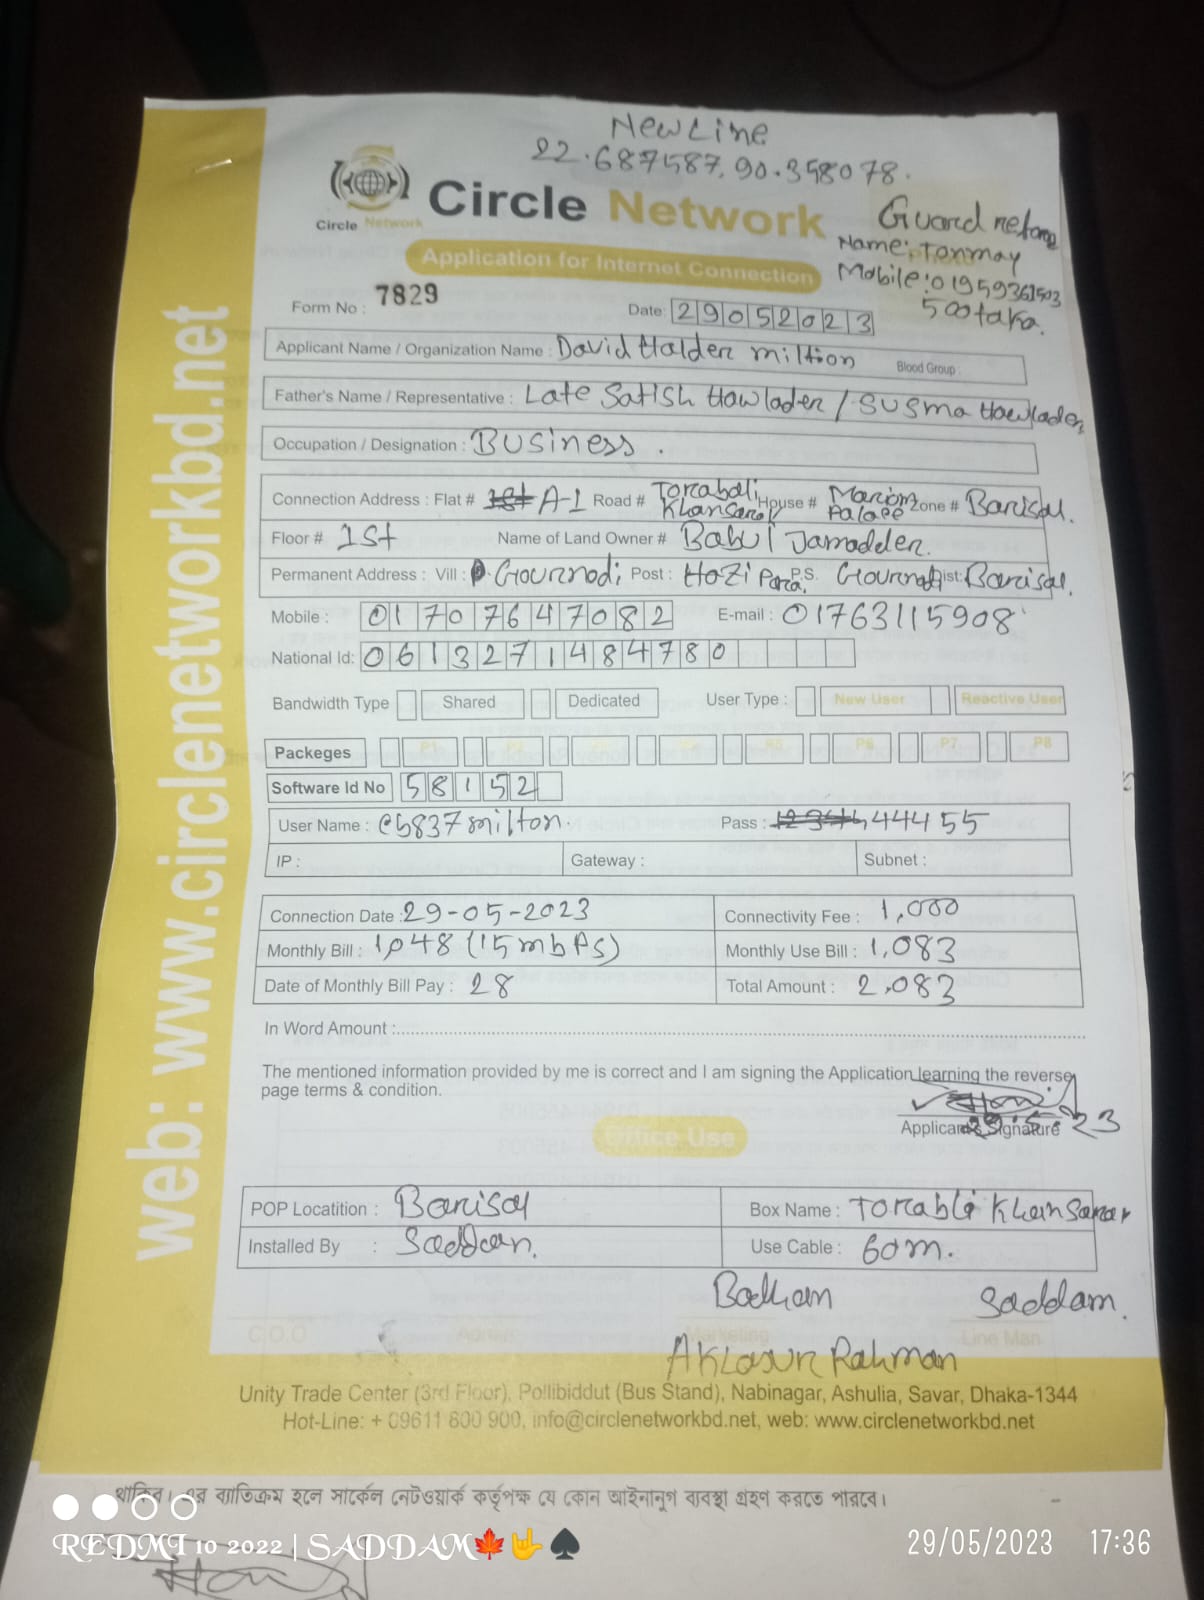 New Line
22.687587, 90.358078.
Circle Network
Circle Network
Guard
Name: Tonmay
Mobile: 01959361503
500 taka.
Application for Internet Connection
Form No : 7829
Date: 29052023
Applicant Name / Organization Name : David Halder miltion Blood Group :
Father's Name / Representative : Late Satish Howlader / Susma Howlader
Occupation / Designation : Business .
Connection Address : Flat # 1st A-1 Road # Torabali Khansarok House # Mariom Palace Zone # Barisal.
Floor # 1st Name of Land Owner # Babul Jamadder.
Permanent Address : Vill : Gournodi Post : Hazi Para. P.S. Gournadi Dist: Barisal.
Mobile : 01707647082 E-mail : 01763115908
National Id: 0613271484780
Bandwidth Type Shared Dedicated User Type : New User Reactive User
Packeges P1 P2 P5 P6 P7 P8
Software Id No 58152
User Name : c5837milton. Pass : 444455
IP : Gateway : Subnet :
Connection Date : 29-05-2023 Connectivity Fee : 1,000
Monthly Bill : 1048 (15mbps) Monthly Use Bill : 1,083
Date of Monthly Bill Pay : 28 Total Amount : 2,083
In Word Amount :
The mentioned information provided by me is correct and I am signing the Application learning the reverse
page terms & condition.
Applicant's Signature
Office Use
POP Locatition : Barisal Box Name : Torabli Khan Sarar
Installed By : Saddam. Use Cable : 60m.
Saddam.
C.O.O Admin Marketing Line Man
Rahman
Unity Trade Center (3rd Floor), Pollibiddut (Bus Stand), Nabinagar, Ashulia, Savar, Dhaka-1344
Hot-Line: + 09611 800 900, info@circlenetworkbd.net, web: www.circlenetworkbd.net
web: www.circlenetworkbd.net
থাকিব। এর ব্যাতিক্রম হলে সার্কেল নেটওয়ার্ক কর্তৃপক্ষ যে কোন আইনানুগ ব্যবস্থা গ্রহণ করতে পারবে।
REDMI 10 2022 | SADDAM🍁🤟♠
29/05/2023 17:36